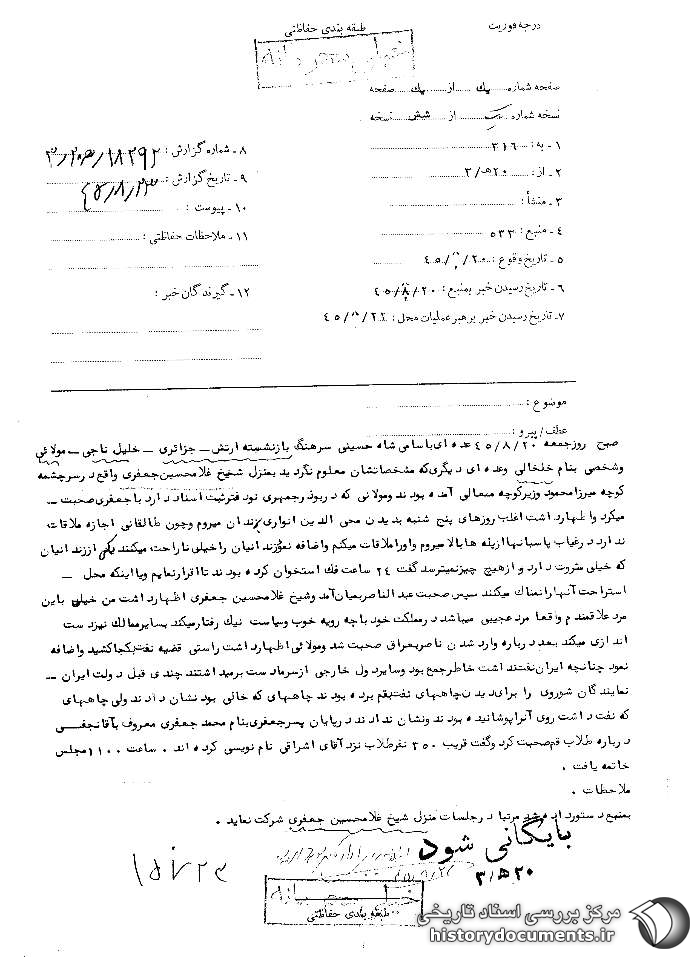 درجه فوریت
طبقه بندی حفاظتی
صفحه شماره یك از یك صفحه
نسخه شماره از شش نسخه
۱ـ به : ۳۱۶
۲ـ از : ۲۰ ه‍ ۳
۳ـ منشأ :
۴ـ منبع : ۵۳۳
۵ـ تاریخ وقوع : ۴۵/۸/۲۰
۶ـ تاریخ رسیدن خبر بمنبع : ۴۵/۸/۲۰
۷ـ تاریخ رسیدن خبر برهبر عملیات محل : ۴۵/۸/۲۲
۸ـ شماره گزارش : ۱۸۲۹۲
۹ـ تاریخ گزارش : ۴۵/۸/۲۳
۱۰ـ پیوست :
۱۱ـ ملاحظات حفاظتی :
۱۲ـ گیرندگان خبر :
موضوع :
عطف/ پیرو :
صبح روزجمعه ۴۵/۸/۲۰ عده ای باسامی شاه حسینی سرهنگ بازنشسته ارتش ـ جزائری ـ خلیل ناجی ـ مولائی
وشخصی بنام خلخالی وعده ای دیگری که مشخصاتشان معلوم نگردید بمنزل شیخ غلامحسین جعفری واقع در سرچشمه
کوچه میرزامحمود وزیر کوچه معمالی آمده بودند ومولائی که در بوذرجمهری نو دفترثبت اسناد دارد باجعفری صحبت ـ
میکرد واظهارداشت اغلب روزهای پنج شنبه بدیدن محی الدین انواری زندان میروم وچون طالقانی اجازه ملاقات
ندارد درغیاب پاسبانها ازپله ها بالا میروم واورا ملاقات میکنم واضافه نمود زندانیان راخیلی ناراحت میکنند یکی اززندانیان
که خیلی مثروت دارد و ازهیچ چیز نمیترسد گفت ۲۴ ساعت فك استخوان کرده بودند تا اقرارنمایم ویا اینکه محل ـ
استراحت آنها را نمناك میکنند سپس صحبت عبدالناصر بمیان آمد وشیخ غلامحسین جعفری اظهارداشت من خیلی باین
مرد علاقمندم واقعا مرد عجیبی میباشد در مملکت خود باچه رویه خوب وسیاست نیك رفتارمیکند بسایرممالك نیز دست
اندازی میکند بعد درباره وارد شدن ناصر بعراق صحبت شد ومولائی اظهارداشت راستی قضیه نفت بکجا کشید واضافه
نمود چنانچه ایران نفتنداشت خاطرجمع بود وسایردول خارجی ازسرما دست برمیداشتند چندی قبل دولت ایران ـ
نمایندگان شوروی را برای دیدن چاههای نفت بقم برده بودند چاههای که خالی بود نشان دادند ولی چاههای
که نفت داشت روی آنرا پوشانیده بودند ونشان ندادند درپایان پسرجعفری بنام محمد جعفری معروف بآقانجفی
درباره طلاب قم صحبت کرد وگفت قریب ۳۵۰ نفرطلاب نزد آقای اشراقی نام نویسی کرده اند . ساعت ۱۱۰۰ مجلس
خاتمه یافت .
ملاحظات .
بمنبع دستور داده شد مرتبا درجلسات منزل شیخ غلامحسین جعفری شرکت نماید .
بایگانی شود
۲۰ ه‍ ۳
طبقه بندی حفاظتی
مرکز بررسی اسناد تاریخی
historydocuments.ir